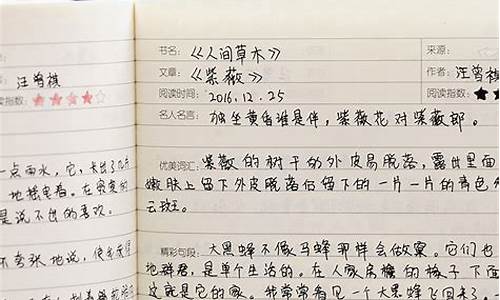 汪曾祺
阅读指数：★★★★☆
一点雨水，它
地摇曳着。在
是说不出的喜欢。
不夸张地说，使
书名：《人间草木》
来源：
文章：《紫薇》
作者：汪曾祺
阅读时间：2016.12.25
阅读指数：★★
名人名言：独坐黄昏谁是伴，紫薇花对紫薇郎。
优美词汇：紫薇的树干的外皮易脱落，露出里面
嫩肤上留下外皮脱落后留下的一片一片的青色
云斑。
精彩句段：大黑蜂不像马蜂那样会做窠。它们也
地群居，是单个生活的。在人家房檐的椽子下面
这就是它的家。我常常看见一个大黑蜂飞回来了